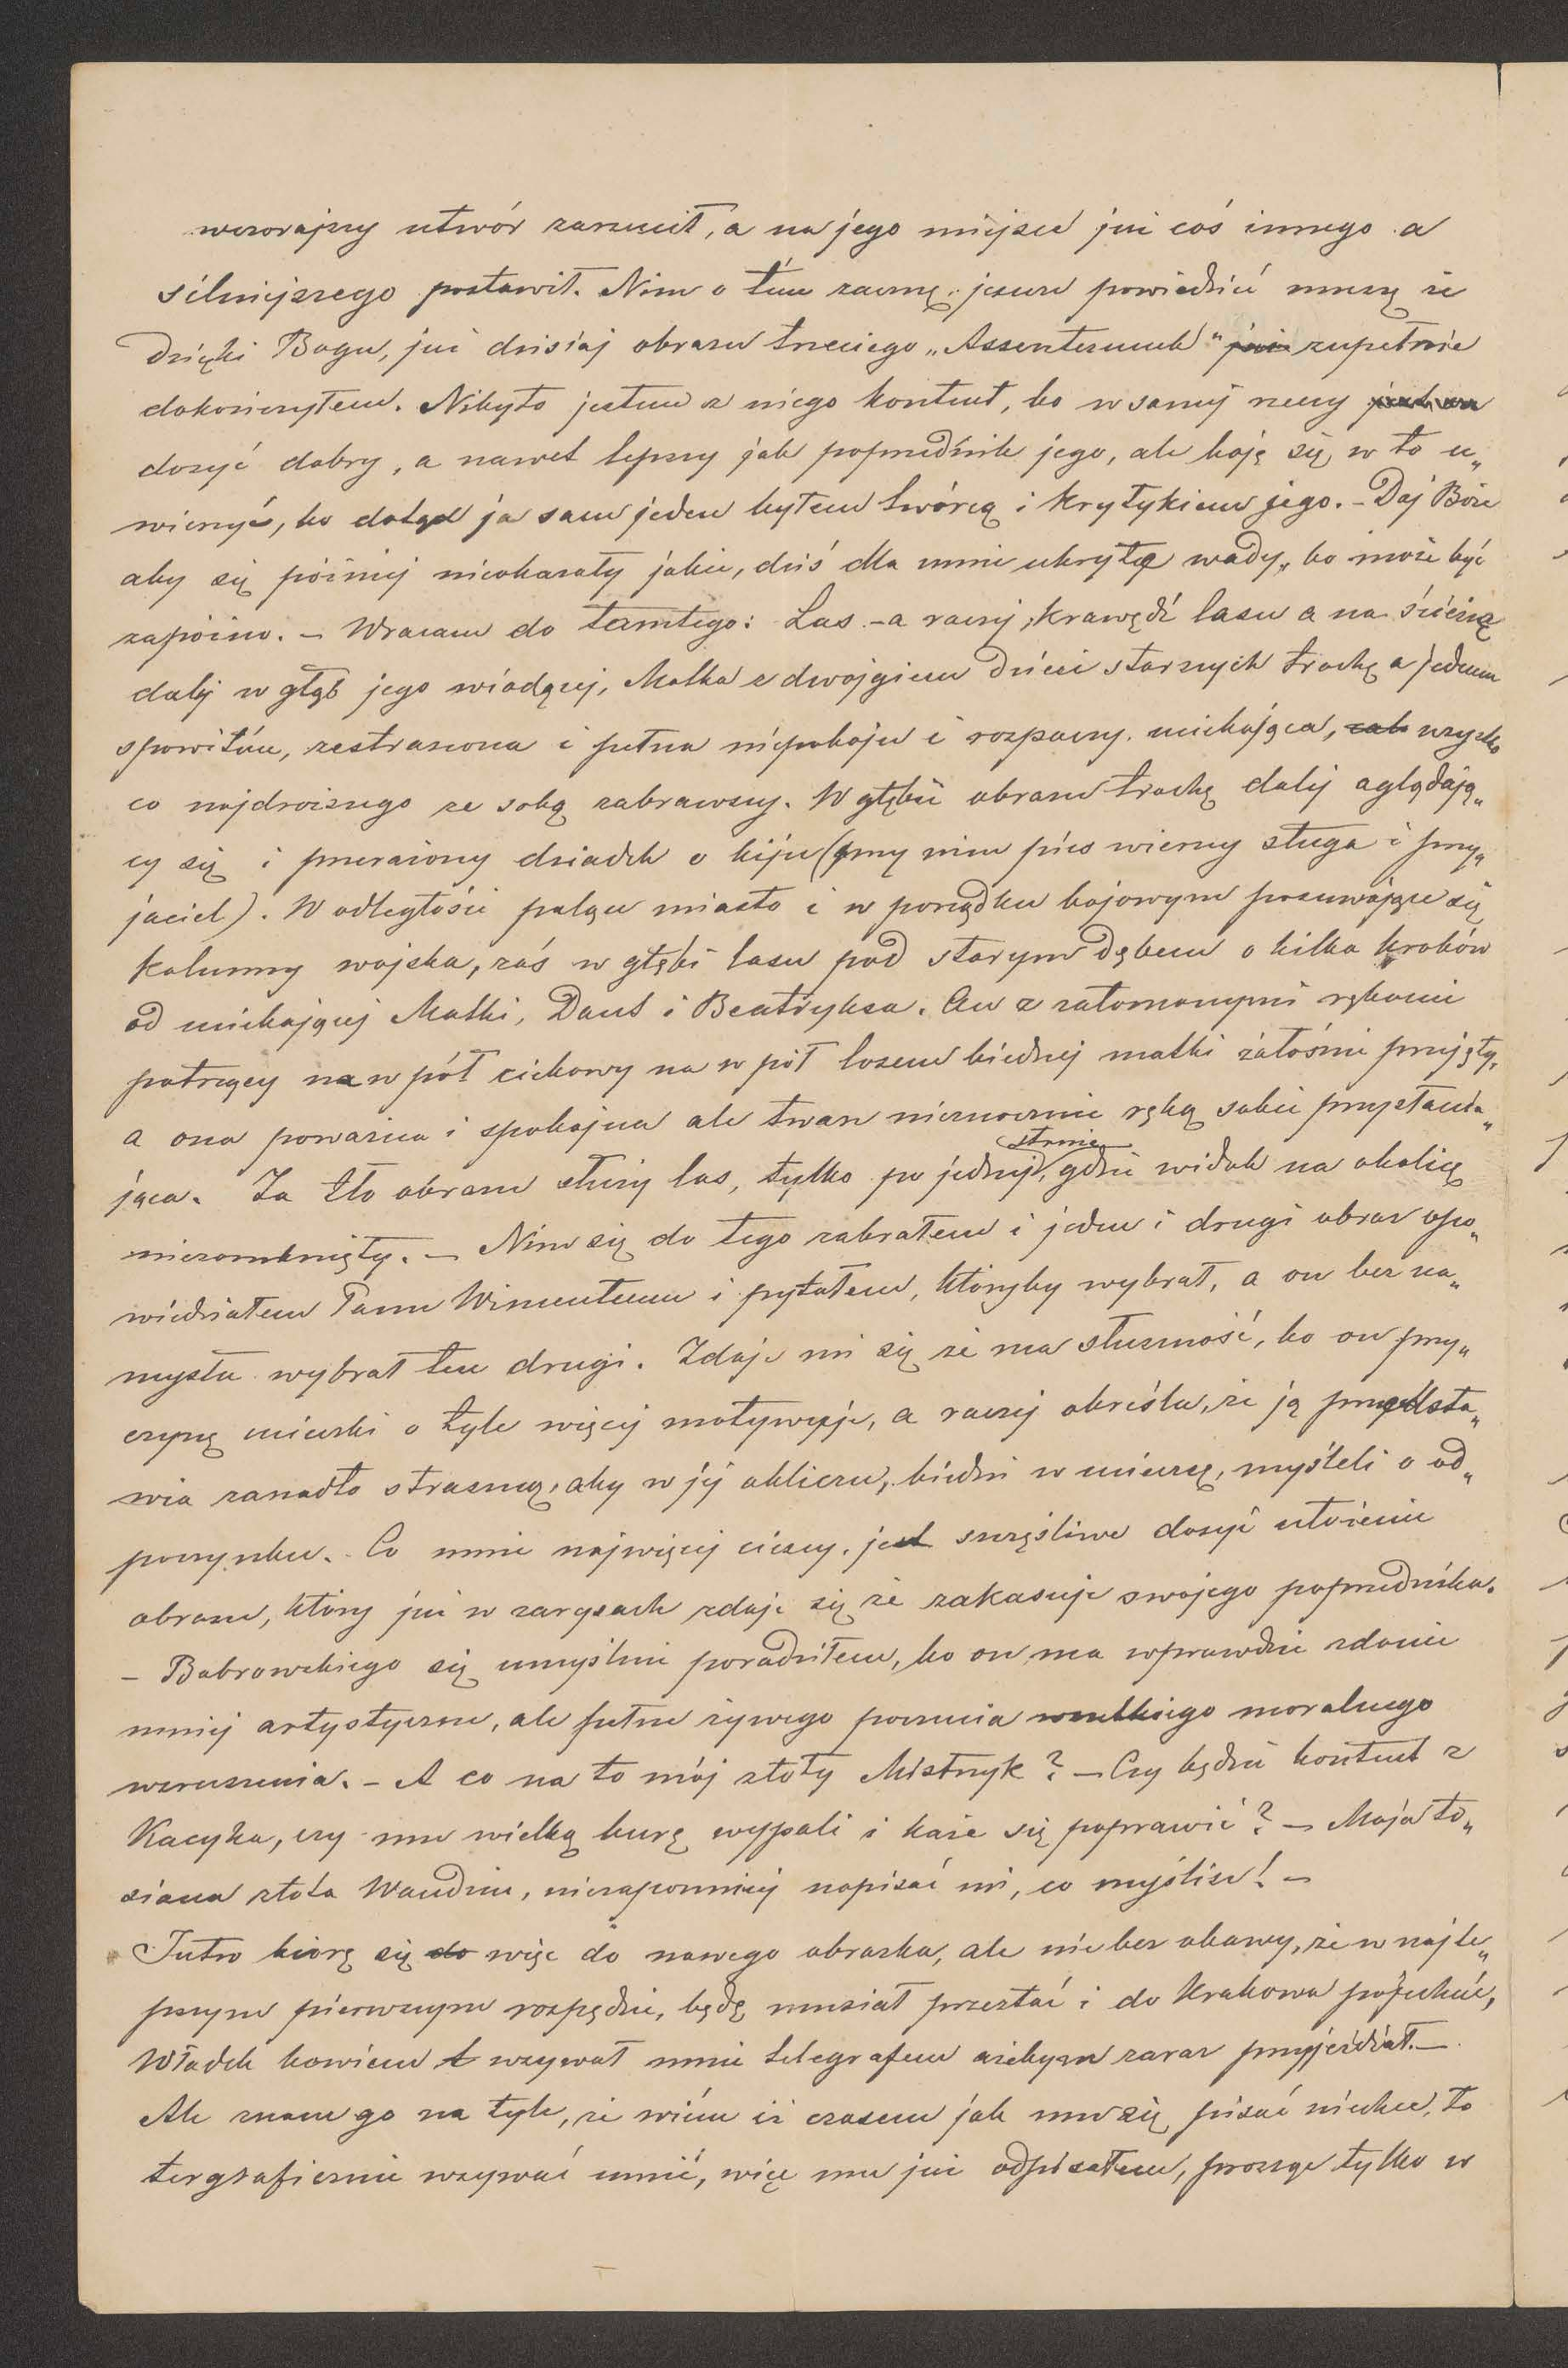 wczorajszy utwór zarzucił, a na jego miejsce już coś innego a
silniejszego postawił. Nim o tém zacznę jeszcze powiedzieć muszę że
Dzięki Bogu, już dzisiaj obrazu trzeciego „Assenterunek" już zupełnie
dokończyłem. Nibyto jestem z niego kontent, bo w samej rzeczy
dosyć dobry, a nawet lepszy jak poprzednik jego, ale boję się w to u„
wierzyć, bo dotąd ja sam jeden byłem twórcą i krytykiem jego. – Daj Boże
aby się później nieokazały jakie, dziś dla mnie ukryte wady, bo może być
zapóźno. – Wracam do tamtego: Las – a raczej, krawędź lasu a na ścieżce
dalej w głąb jego wiodącej, Matka z dwojgiem dzieci starszych trochę a jednem
spowitém, zestraszona i pełna niepokoju i rozpaczy uciekająca, wszystko
co najdroższego ze sobą zabrawszy. W głębi obrazu trochę dalej oglądają„
cy się i przerażony dziadek o kiju (przy nim pies wierny sługa i przy„
jaciel). W odległości palące miasto i w porządku bojowym posuwające się
kolumny wojska, zaś w głębi lasu pod starym dębem o kilka kroków
od uciekającej Matki, Dant i Beatryksa. On z załomanymi rękami
patrzący na wpół ciekawy na wpół losem biednej matki żałośnie przejęty,
a ona poważna i spokojna ale twarz nieznacznie ręką sobie przysłania„
jąca. Za tło obrazu służy las, tylko po jednej stronie, gdzie widok na okolicę
niezamknięty. – Nim się do tego zabrałem i jeden i drugi obraz opo„
wiedziałem Panu Wincentemu i pytałem, któryby wybrał, a on bez na„
mysłu wybrał ten drugi. Zdaje mi się że ma słuszność, bo on przy„
czynę ucieczki o tyle więcej motywuje, a raczej określa, że ją przedsta„
wia zanadto straszną, aby w jej obliczu, biedni w ucieczce, myśleli o od„
poczynku. Co mnie najwięcej cieszy, jest szczęśliwe dosyć ułożenie
obrazu, który już w zarysach zdaje się że zakasuje swojego poprzednika.
– Bobrowskiego się umyślnie poradziłem, bo on ma wprawdzie zdanie
mniej artystyczne, ale pełne żywego poczucia wszelkiego moralnego
wzruszenia. – A co na to mój złoty Mistrzyk? – Czy będzie kontent z
Kacyka, czy mu wielką burę wypali i każe się poprawić? – Moja to„
siana złota Wandziu, niezapomniej napisać mi, co myślisz! –
Jutro biorę się do więc do nowego obrazka, ale nie bez obawy, że w najle„
pszym pierwszym rozpędzie, będę musiał przestać i do Krakowa pojechać,
Władek bowiem wzywał mnie telegrafem ażebym zaraz przyjeżdżał. –
Ale znam go na tyle, że wiém iż czasem jak mu się pisać niechce, to
tergraficznie wzywać umié, więc mu już odpisałem, prosząc tylko w